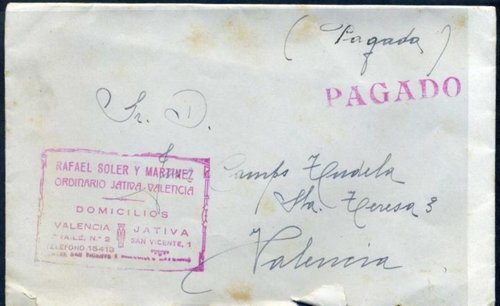 (Pagada)
PAGADO
Sr. D.
RAFAEL SOLER Y MARTINEZ
ORDINARIO JATIVA-VALENCIA
DOMICILIOS
VALENCIA JATIVA
BAILE, N.º 2 SAN VICENTE, 1
TELEFONO 15413
Sta. Teresa 3
Valencia